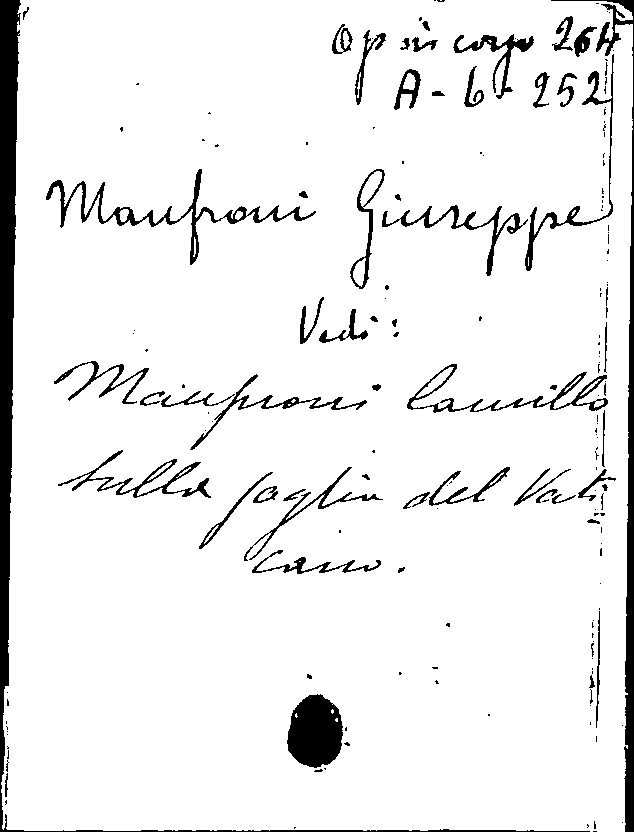 Op in corso 264
A-6-252
Manfroni Giuseppe
Vedi:
Manfroni Camillo
Sulla soglia del Vati
cano.